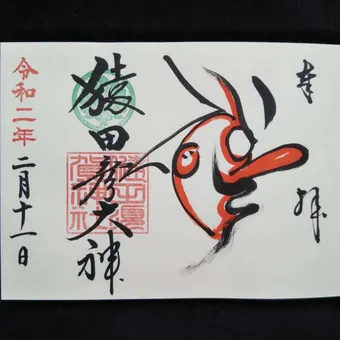 奉拝
猿田彦大神
令和二年
二月十一日